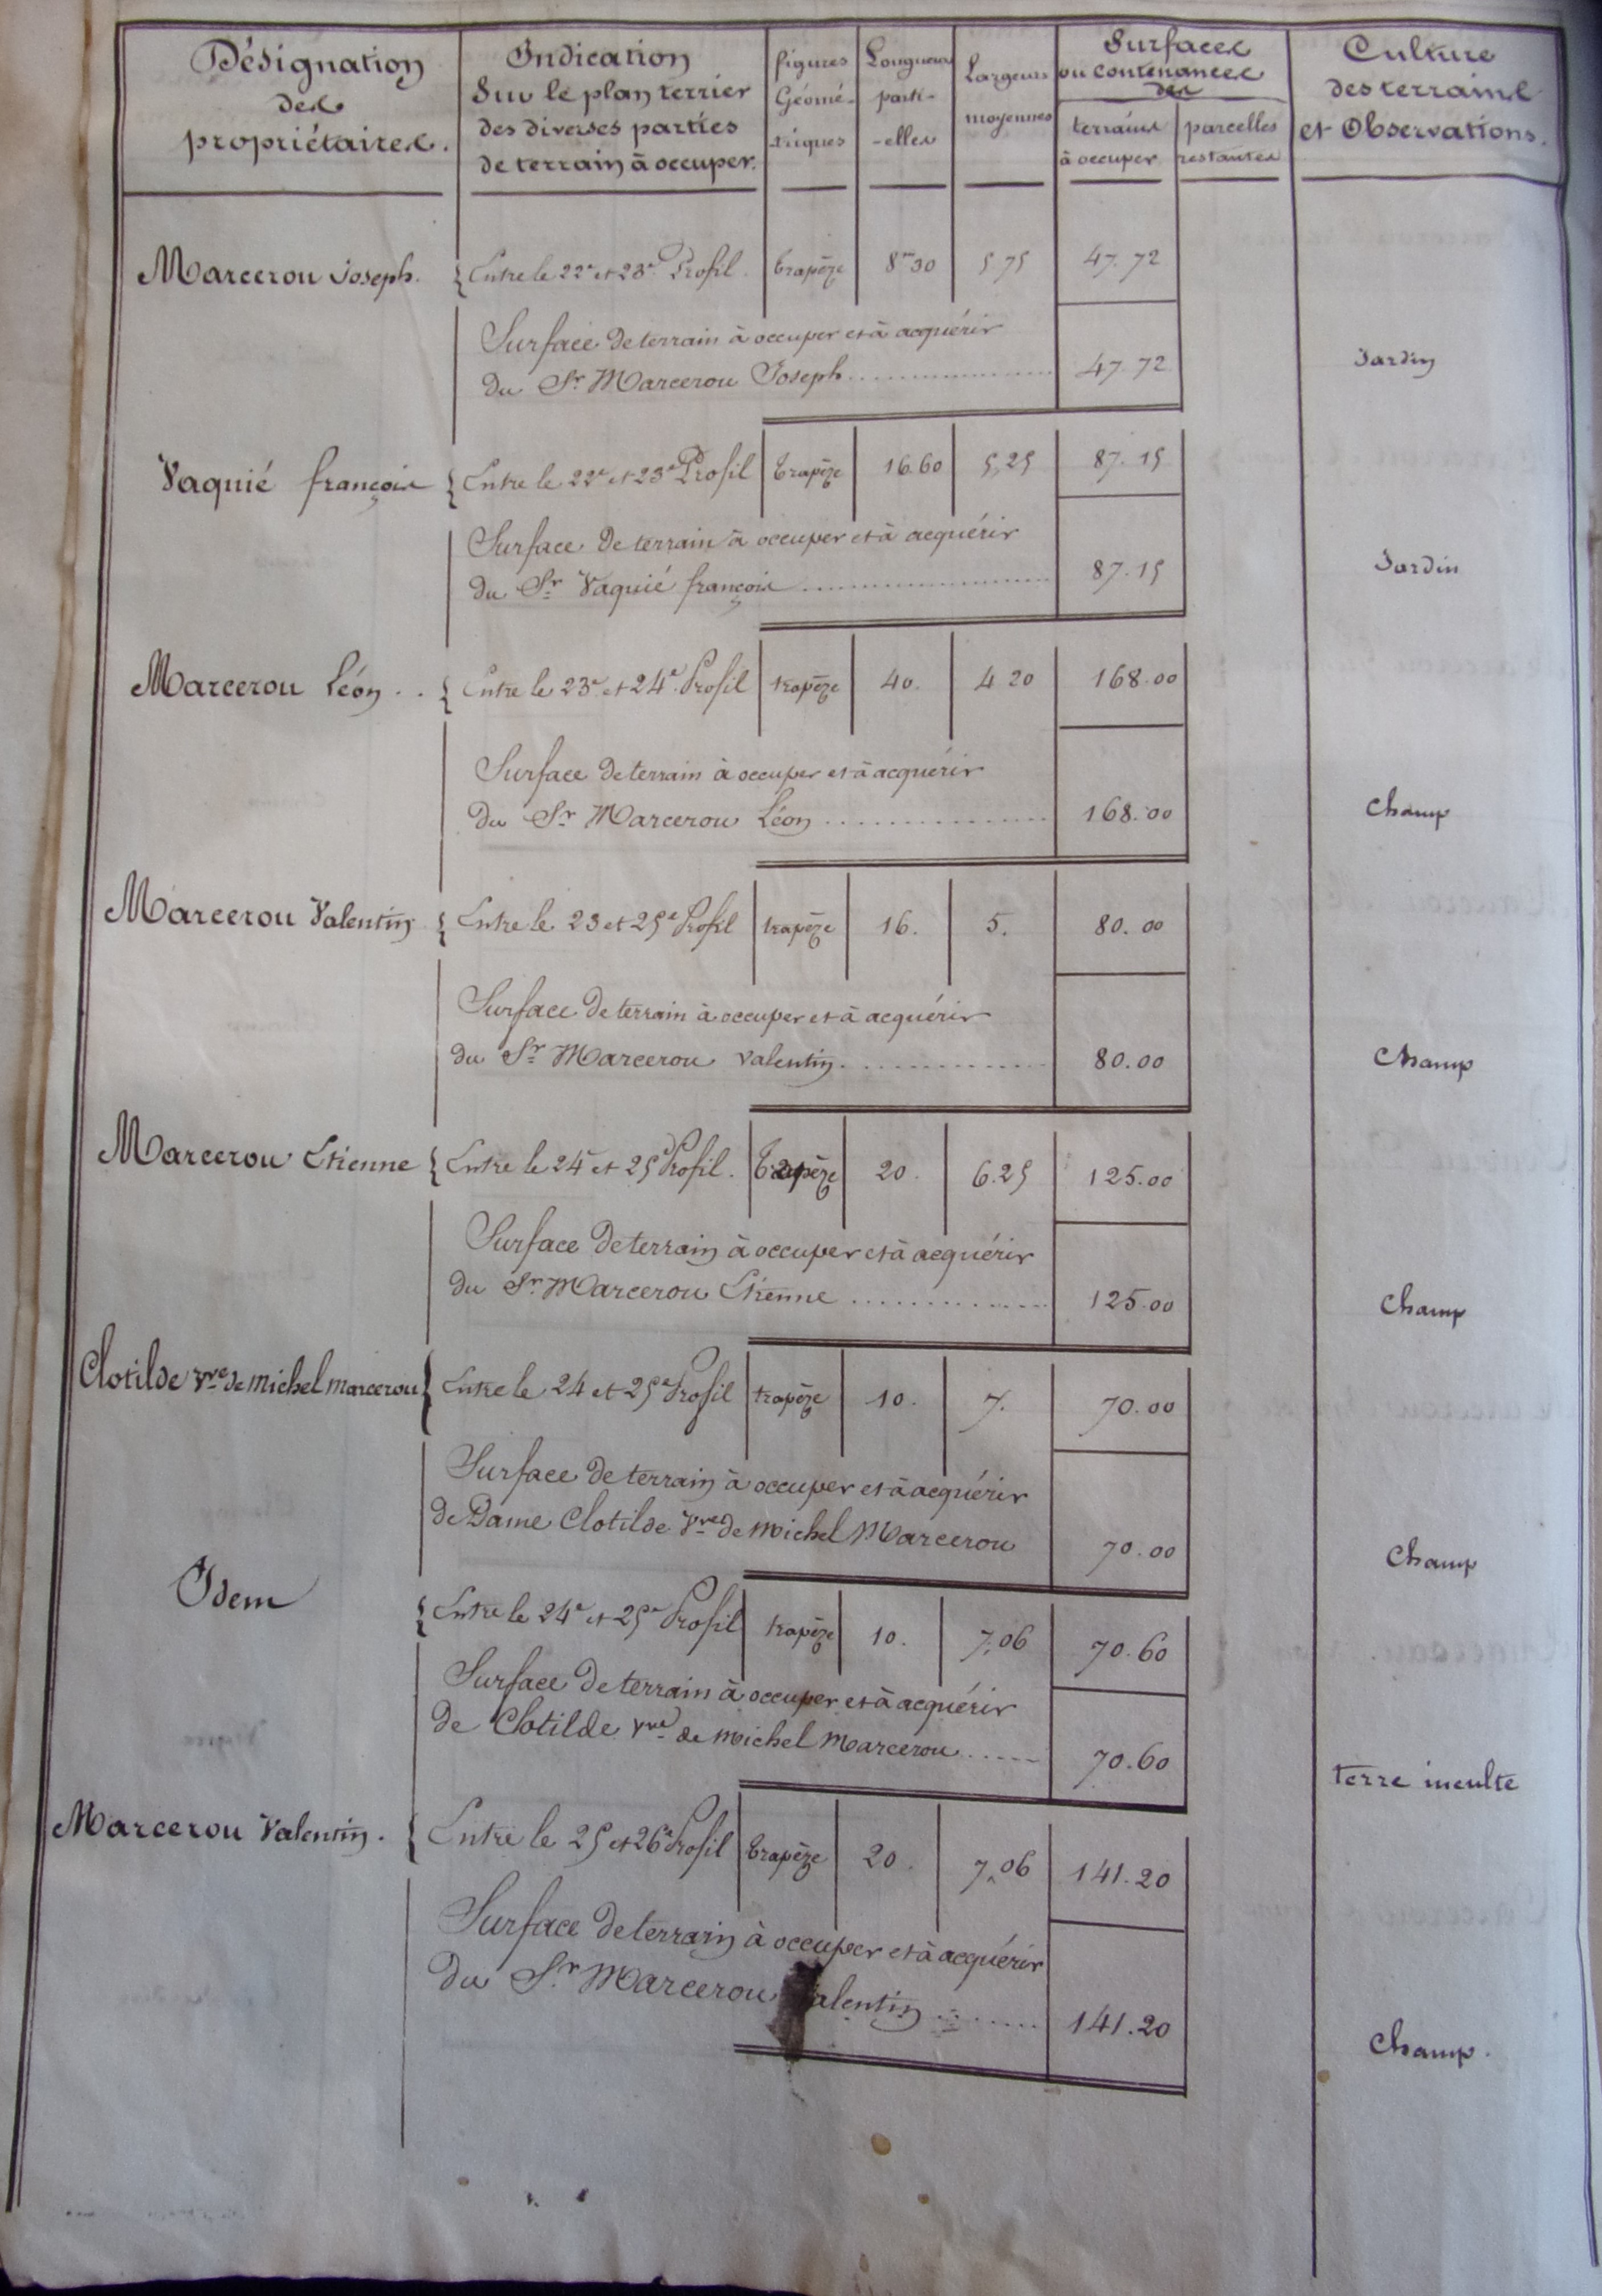 Désignation des propriétaires.
Indication Sur le plan terrier des diverses parties de terrain à occuper.
figures Géomé-triques
Longueurs parti-elles
Largeurs moyennes
Surfaces ou contenances des
terrains à occuper
parcelles restantes
Culture des terrains et Observations.
Marcerou Joseph. { Entre le 22e et 23e Profil. trapèze 8m30 5,75 47.72
Surface de terrain à occuper et à acquérir
du Sr Marcerou Joseph .................. 47.72 Jardin
Vaquié françois { Entre le 22e et 23e Profil trapèze 16.60 5,25 87.15
Surface de terrain à occuper et à acquérir
du Sr Vaquié françois .................. 87.15 Jardin
Marcerou Léon .. { Entre le 23e et 24e Profil trapèze 40. 4 20 168.00
Surface de terrain à occuper et à acquérir
du Sr Marcerou Léon ................ 168.00 Champ
Marcerou Valentin { Entre le 23 et 25e Profil trapèze 16. 5. 80.00
Surface de terrain à occuper et à acquérir
du Sr Marcerou Valentin ............... 80.00 Champ
Marcerou Etienne { Entre le 24e et 25e Profil. trapèze 20. 6.25 125.00
Surface de terrain à occuper et à acquérir
du Sr Marcerou Etienne .............. 125.00 Champ
Clotilde Vve de Michel Marcerou { Entre le 24 et 25e Profil trapèze 10. 7. 70.00
Surface de terrain à occuper et à acquérir
de Dame Clotilde Vve de Michel Marcerou 70.00 Champ
Idem { Entre le 24e et 25e Profil trapèze 10. 7,06 70.60
Surface de terrain à occuper et à acquérir
de Clotilde Vve de Michel Marcerou ...... 70.60 terre inculte
Marcerou Valentin. { Entre le 25 et 26e Profil trapèze 20. 7,06 141.20
Surface de terrain à occuper et à acquérir
du Sr Marcerou Valentin ........ 141.20 Champ.